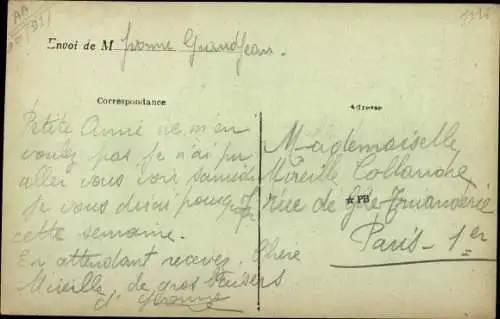 Envoi de M Yvonne Grandjean.
Correspondance
Adresse
Petite Amie ne m'en
voulez pas je n'ai pu
aller vous voir samedi
je vous dirai pourquoi
cette semaine.
En attendant recevez Chère
Mireille, de gros Baisers
d' Yvonne
Mademoiselle
Mireille Collanche
rue de Gde Truanderie
★PB
Paris - 1er